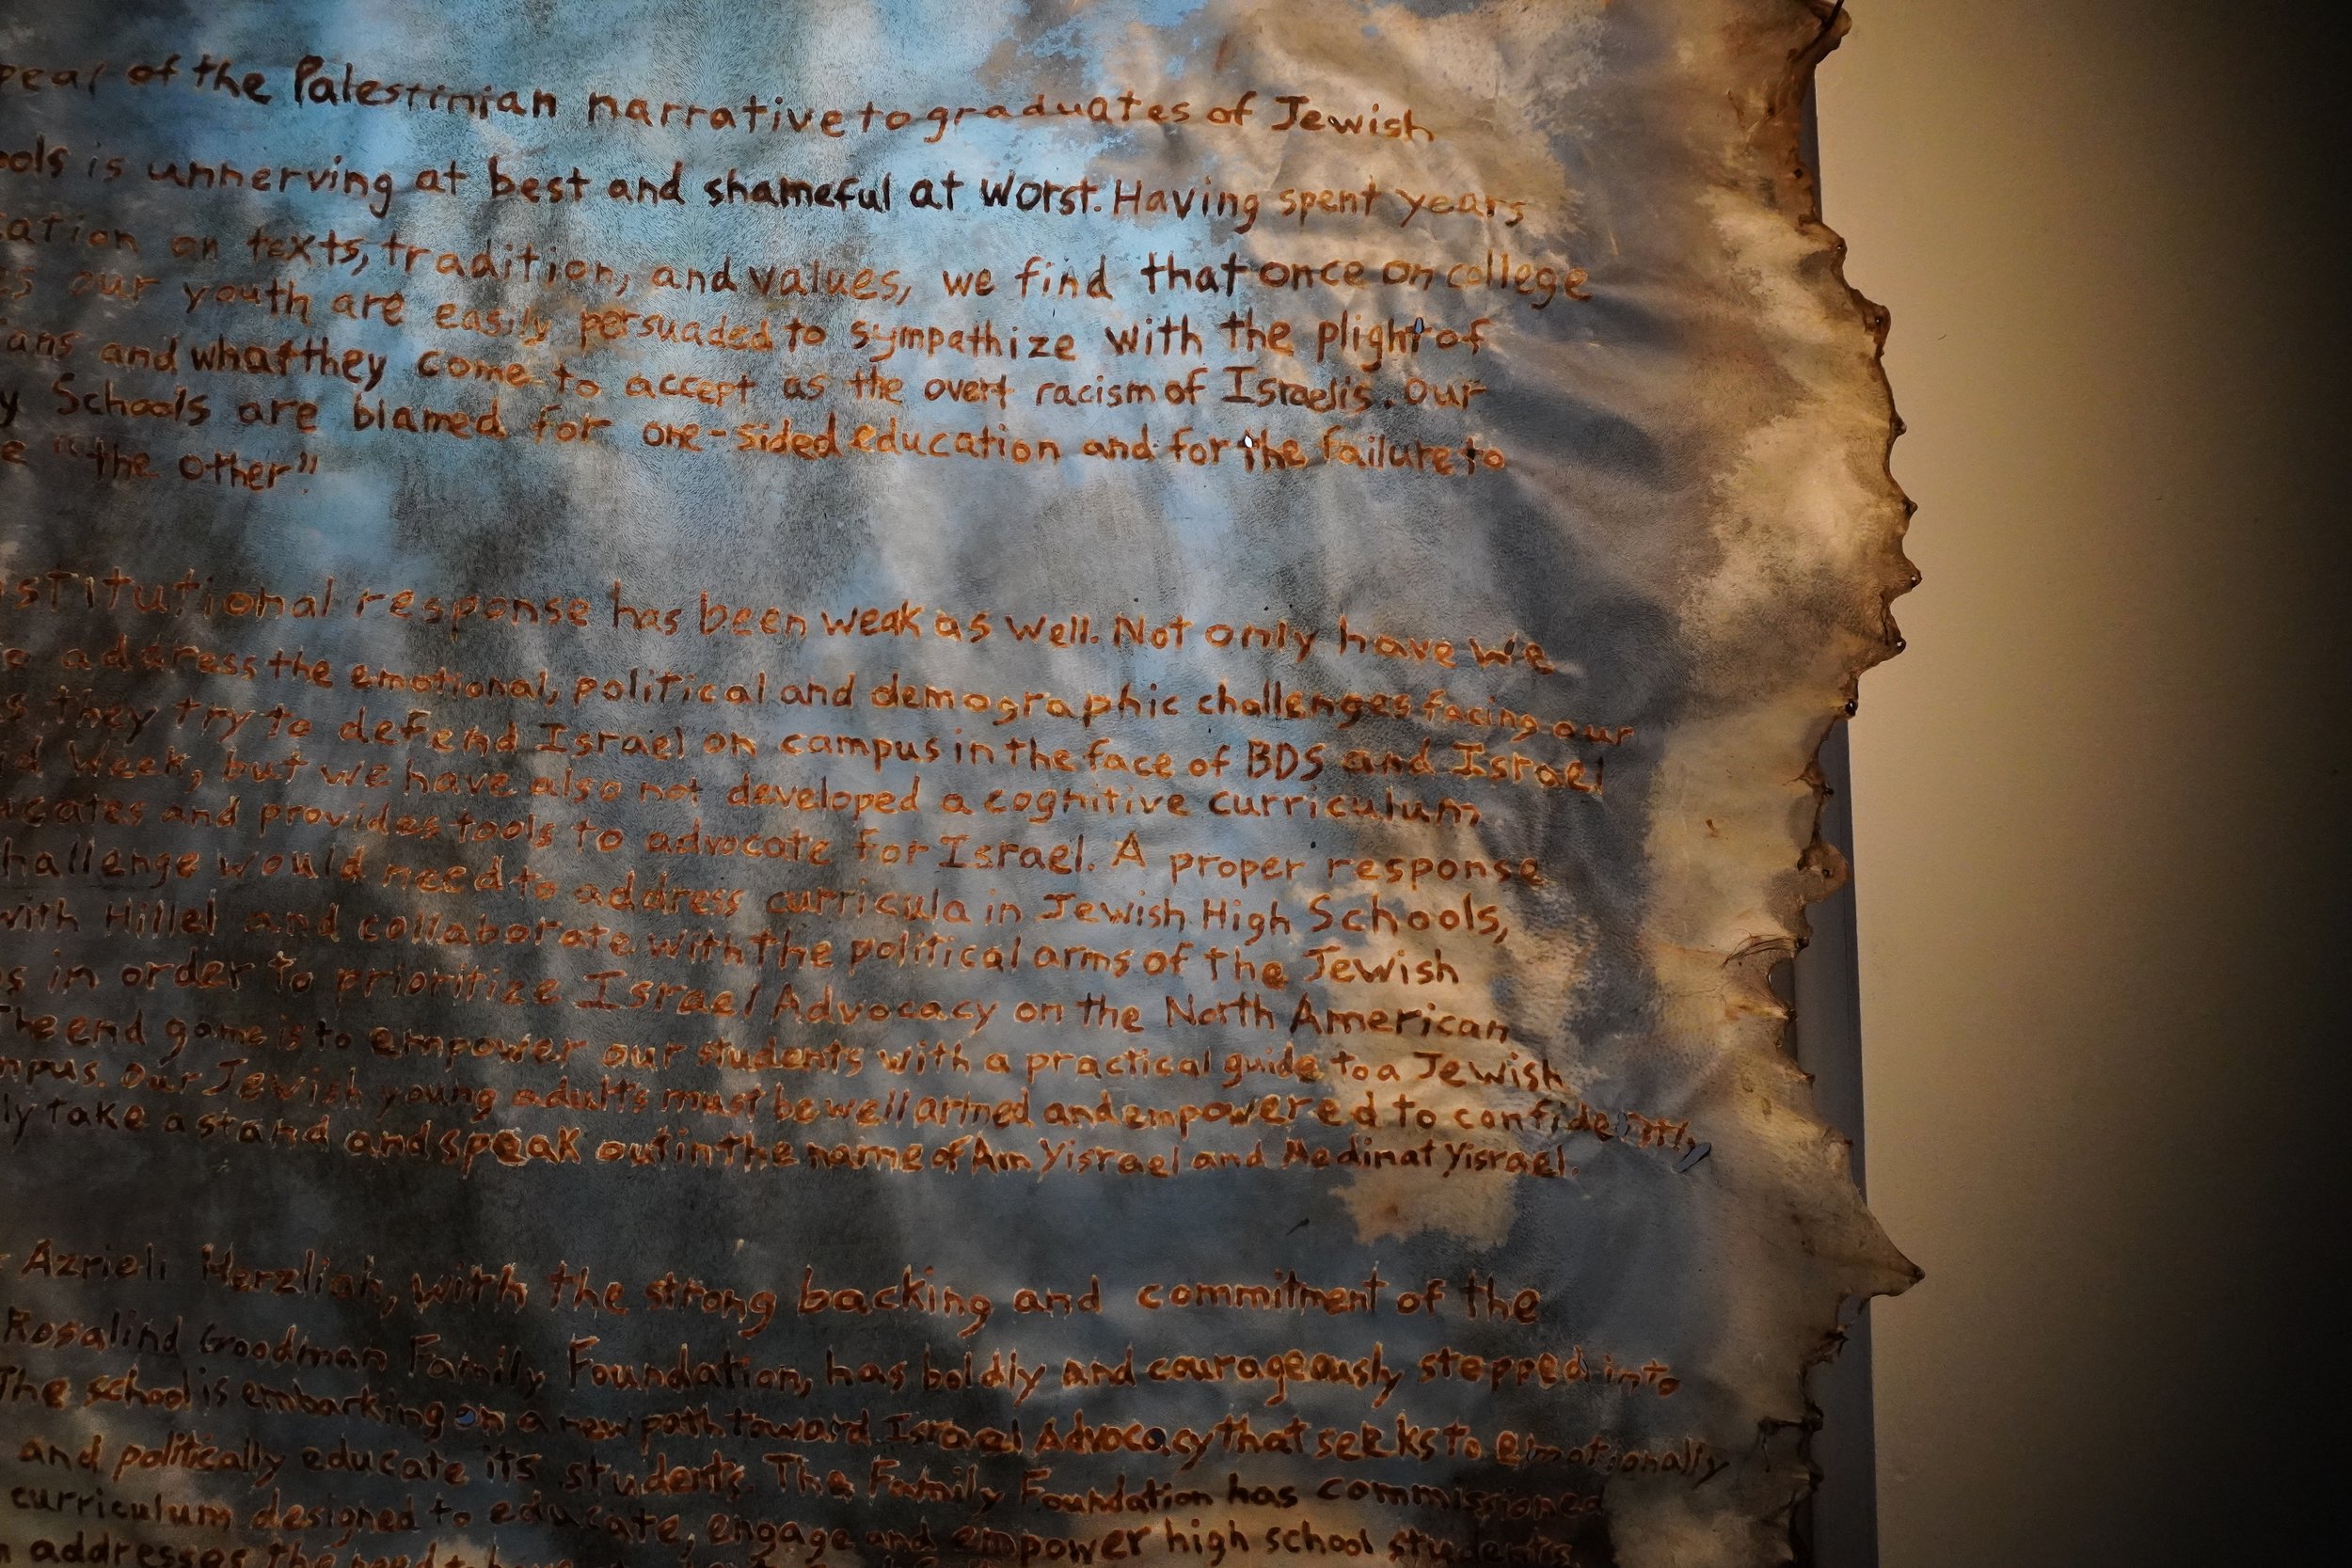 pear of the Palestinian narrative to graduates of Jewish
ools is unnerving at best and shameful at worst. Having spent years
cation on texts, tradition, and values, we find that once on college
es our youth are easily persuaded to sympathize with the plight of
ians and what they come to accept as the overt racism of Israelis. Our
y Schools are blamed for one-sided education and for the failure to
e "the other"
nstitutional response has been weak as well. Not only have we
address the emotional, political and demographic challenges facing our
s they try to defend Israel on campus in the face of BDS and Israel
id Week, but we have also not developed a cognitive curriculum
ucates and provides tools to advocate for Israel. A proper response
hallenge would need to address curricula in Jewish High Schools,
with Hillel and collaborate with the political arms of the Jewish
s in order to prioritize Israel Advocacy on the North American
The end game is to empower our students with a practical guide to a Jewish
mpus. Our Jewish young adults must be well armed and empowered to confidently
ly take a stand and speak out in the name of Am Yisrael and Medinat Yisrael.
Azrieli Herzliah, with the strong backing and commitment of the
Rosalind Goodman Family Foundation, has boldly and courageously stepped into
The school is embarking on a new path toward Israel Advocacy that seeks to emotionally
and politically educate its students. The Family Foundation has commissioned
curriculum designed to educate, engage and empower high school students.
addresses the need to have